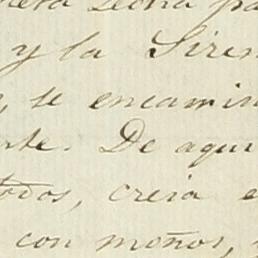 Leona pa
y la Siren
, se encamin
rte. De aqui
todos, creia e
con moños,